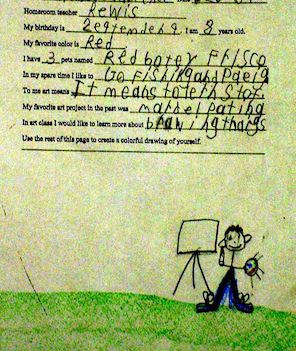 Homeroom teacher Rewis
My birthday is Septemder 9. I am 8 years old.
My favorite color is Red
I have 3 pets named Red botey Frisco
In my spare time I like to Go Fishing and
To me art means It means to
My favorite art project in the past was marbel pating
In art class I would like to learn more about drawing thangs
Use the rest of this page to create a colorful drawing of yourself.